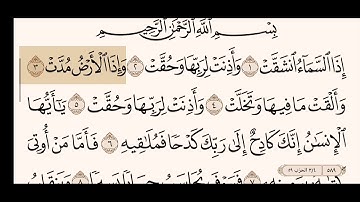 بِسْمِ ٱللَّهِ ٱلرَّحْمَٰنِ ٱلرَّحِيمِ
إِذَا ٱلسَّمَآءُ ٱنشَقَّتْ ١ وَأَذِنَتْ لِرَبِّهَا وَحُقَّتْ ٢ وَإِذَا ٱلْأَرْضُ مُدَّتْ ٣
وَأَلْقَتْ مَا فِيهَا وَتَخَلَّتْ ٤ وَأَذِنَتْ لِرَبِّهَا وَحُقَّتْ ٥ يَٰٓأَيُّهَا
ٱلْإِنسَٰنُ إِنَّكَ كَادِحٌ إِلَىٰ رَبِّكَ كَدْحًا فَمُلَٰقِيهِ ٦ فَأَمَّا مَنْ أُوتِىَ
٥٨٩ ٣/٤ الحزب ٥٩